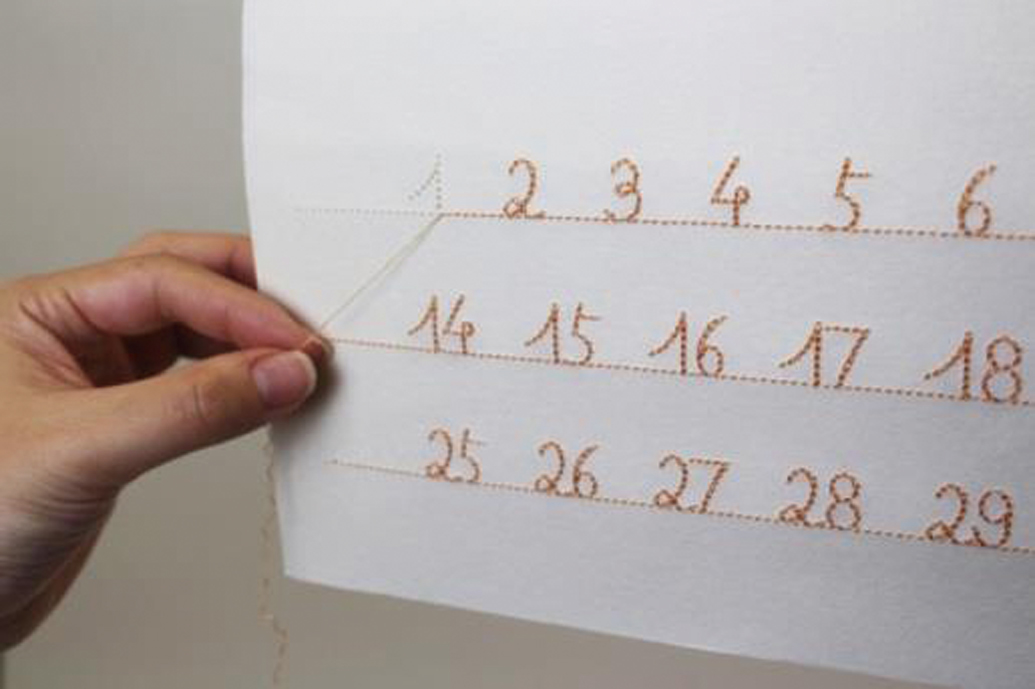 1 2 3 4 5 6
14 15 16 17 18
25 26 27 28 29